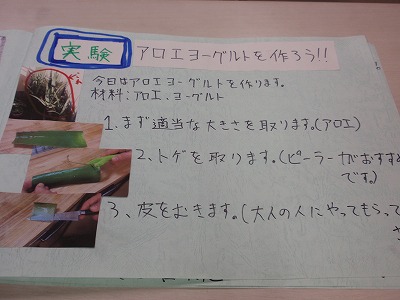 実験 アロエヨーグルトを作ろう!!
今日はアロエヨーグルトを作ります。
材料:アロエ、ヨーグルト
1、まず適当な大きさを取ります。(アロエ)
2、トゲを取ります。(ピーラーがおすすめ
です。)
3、皮をむきます。(大人の人にやってもらって